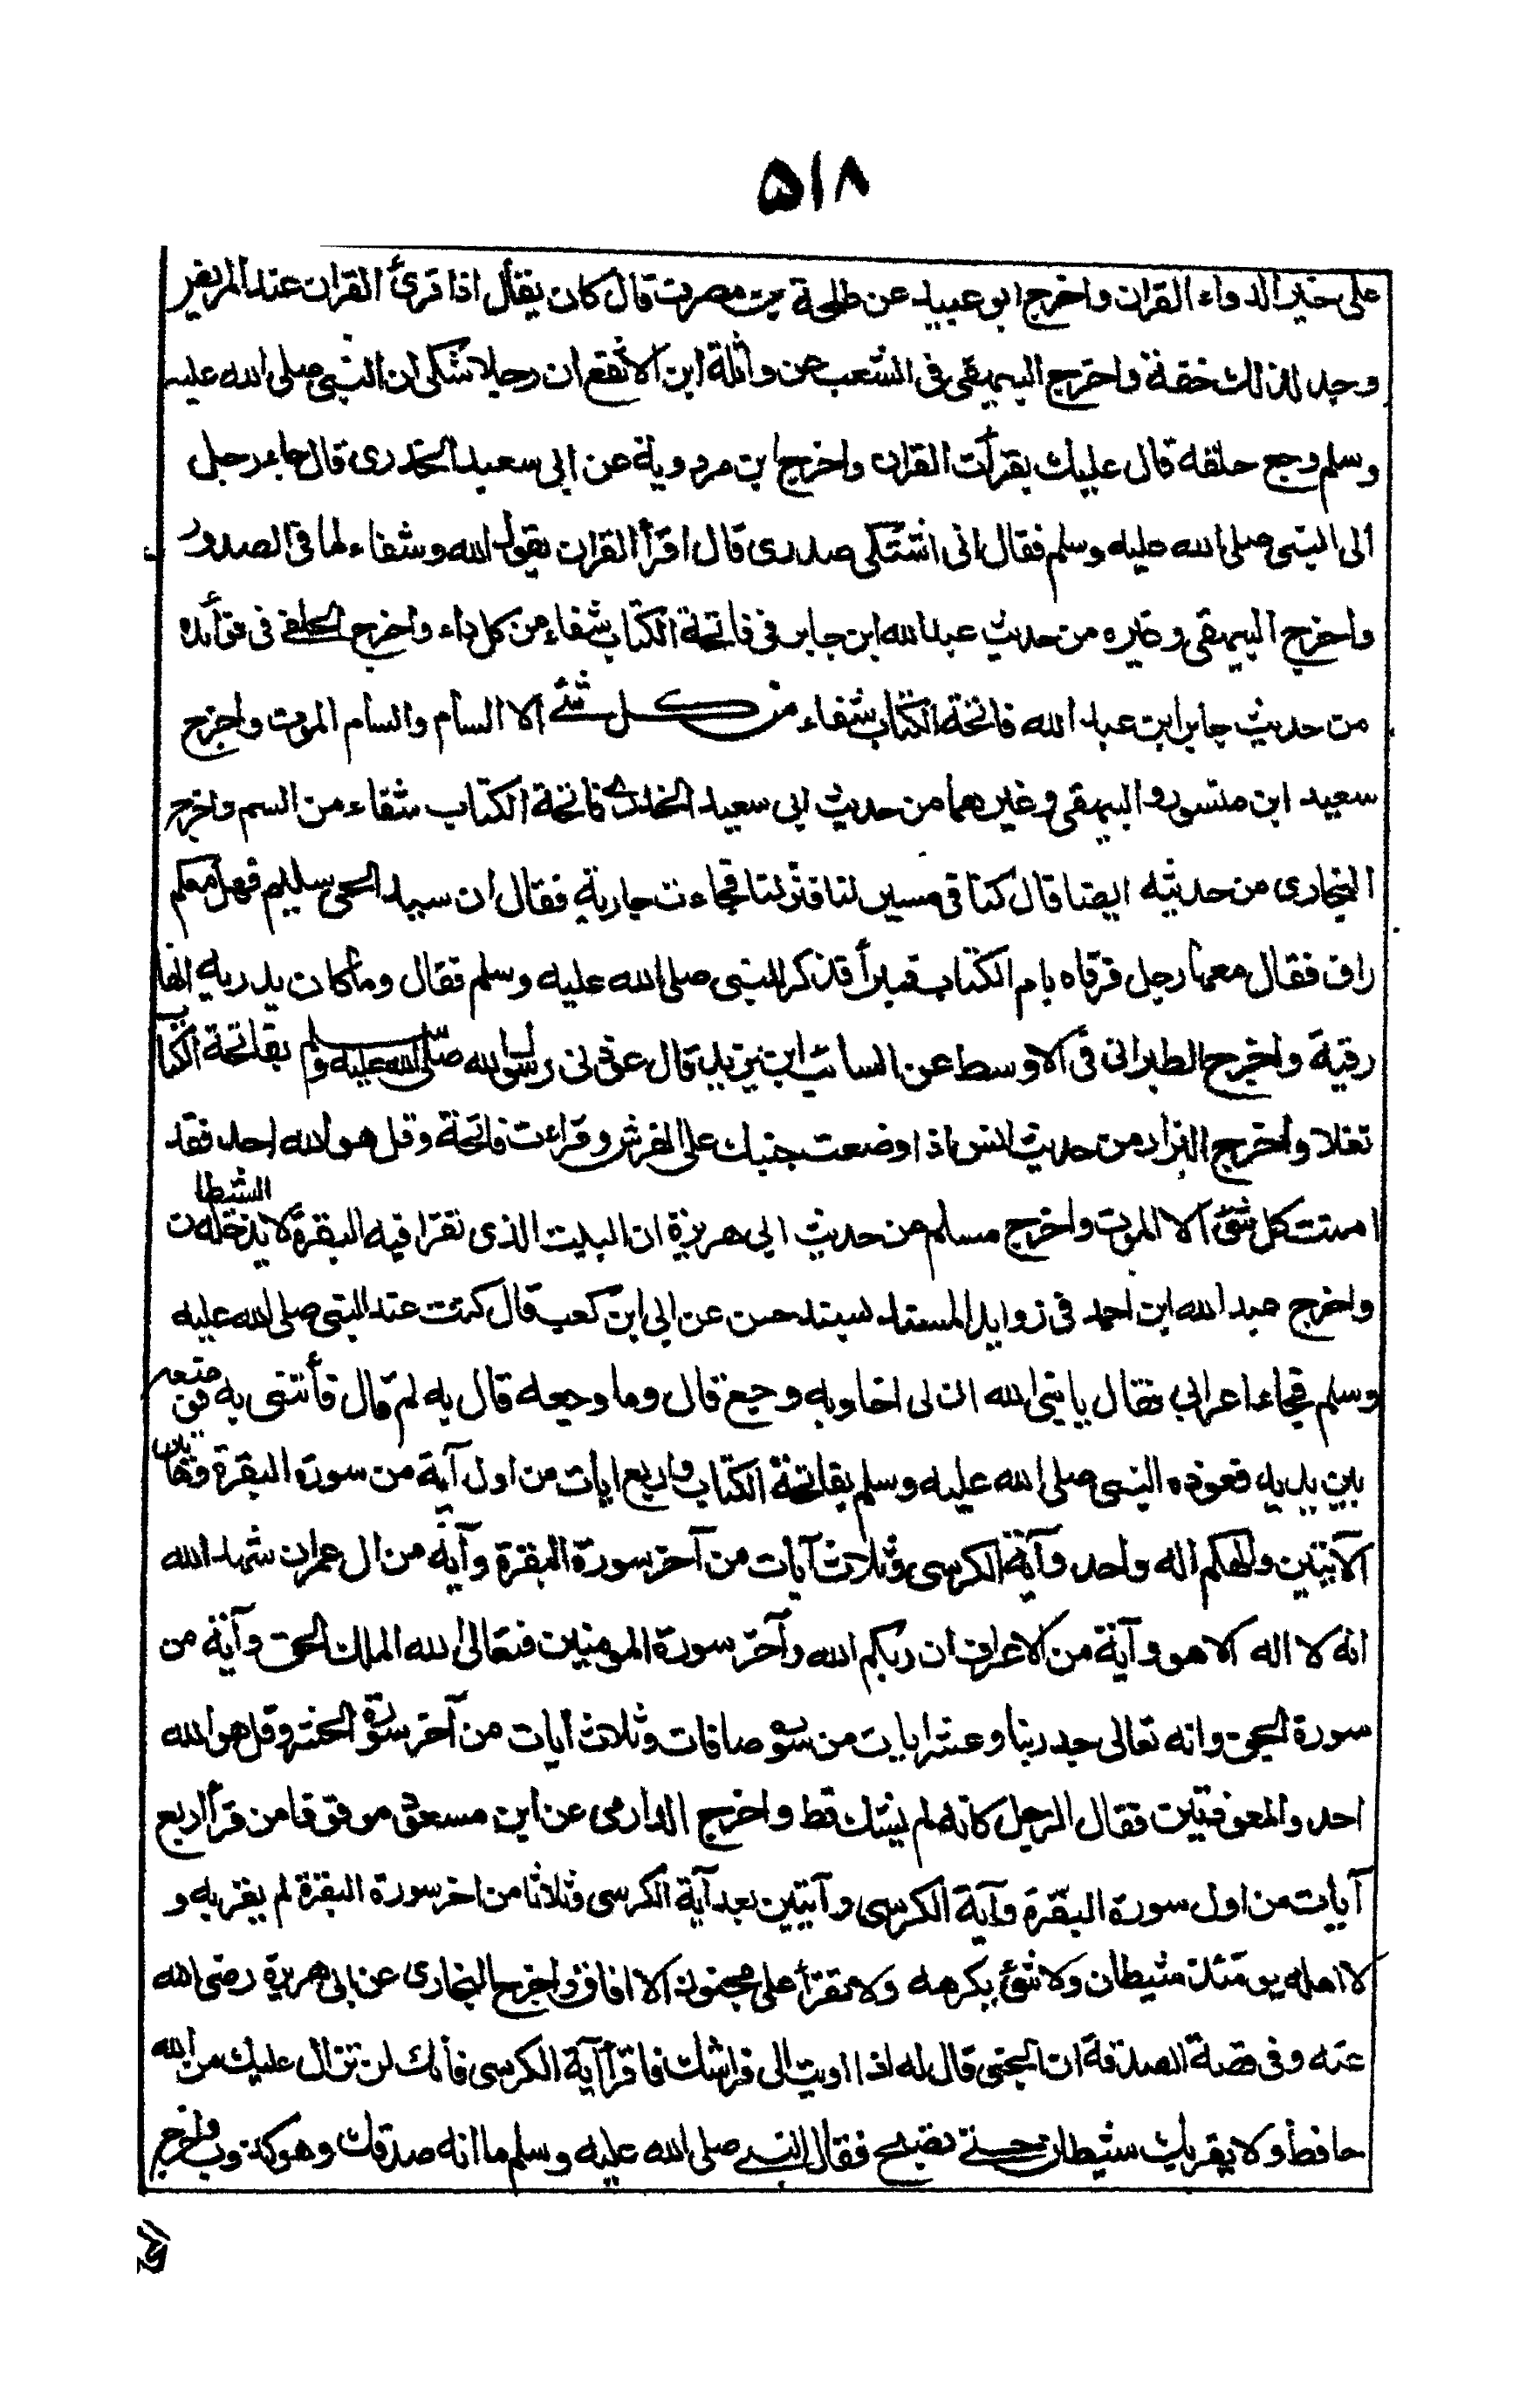 ۵۱۸
على خير الدواء القران واخرج ابو عبيد عن طلحة بن مصرف قال كان يقال اذا قرئ القران عند المريض
وجد لذلك خفة واخرج البيهقى فى الشعب عن واثلة ابن الاثقع ان رجلا شكى ان النبى صلى الله عليه
وسلم وجع حلقه قال عليك بقرأت القران واخرج ابن مردوية عن ابى سعيد الخدرى قال جاء رجل
الى النبى صلى الله عليه وسلم فقال انى اشتكى صدرى قال اقرأ القران يقول الله وشفاء لما فى الصدور
واخرج البيهقى وغيره من حديث عبدالله ابن جابر فى فاتحة الكتاب شفاء من كل داء واخرج الخلفے فى فوأئده
من حديث جابر ابن عبد الله فاتحة الكتاب شفاء من كل شئے الا السأم والسأم الموت واخرج
سعيد ابن منسور والبيهقى وغيرهما من حديث ابى سعيد الخدرے فاتحة الكتاب شفاء من السم واخرج
البخارى من حديثه ايضا قال كنا فى مسير لنا فنزلنا فجاءت جارية فقال ان سيد الحى سليم فهل معكم
راق فقال معها رجل فرقاه بام الكتاب فبرأ فذكر للنبى صلى الله عليه وسلم فقال وما كان يدريه انها
رقية واخرج الطبرانى فى الاوسط عن السائب ابن يزيد قال عوذنى رسول الله صلى الله عليه وسلم بفاتحة الكتاب
تفلا واخرج البزار من حديث انس اذا وضعت جنبك على الفرش وقراءت فاتحة وقل هو الله احد فقد
امنت كل شئ الا الموت واخرج مسلم من حديث ابى هريرة ان البيت الذى تقرا فيه البقرة لا يدخله الشيطان
واخرج عبد الله ابن احمد فى زوايد المسند بسند حسن عن ابى ابن كعب قال كنت عند النبى صلى الله عليه
وسلم فجاء اعرابى فقال يا نبى الله ان لى اخا وبه وجع قال وما وجعه قال به لم قال فأتنى به فوضعه
بين يديه فعوذه النبى صلى الله عليه وسلم بفاتحة الكتاب واربع ايات من اول آية من سورة البقرة وهاتين
الآيتين والهكم اله واحد وآية الكرسى وثلاث آيات من آخر سورة البقرة وآية من ال عمران شهد الله
انه لا اله الا هو وآية من الاعراف ان ربكم الله وآخر سورة المومنين فتعالى الله الملك الحق وآية من
سورة الجن وانه تعالى جد ربنا وعشر ايات من سورة صافات وثلاث أيات من آخر سورة الحشر وقل هو الله
احد والمعوذتين فقال الرجل كانه لم يشك قط واخرج الدارمى عن ابن مسعود موقوفا من قرأ اربع
آيأت من اول سورة البقرة وآية الكرسى وآيتين بعد آية الكرسى وثلاثا من اخر سورة البقرة لم يقربه و
لا اهله يومئذ شيطان ولا شئ يكرهه ولا تقرأ على مجنون الا افاق واخرج البخارى عن ابى هريرة رضى الله
عنه وفى قصة الصدقة ان الجنى قال له اذا اويت الى فراشك فاقرأ آية الكرسى فأنك لن تزال عليك من الله
حافظ ولا يقربك شيطان حتے تصبح فقال النبے صلى الله عليه وسلم ما انه صدقك وهو كذوب واخرج